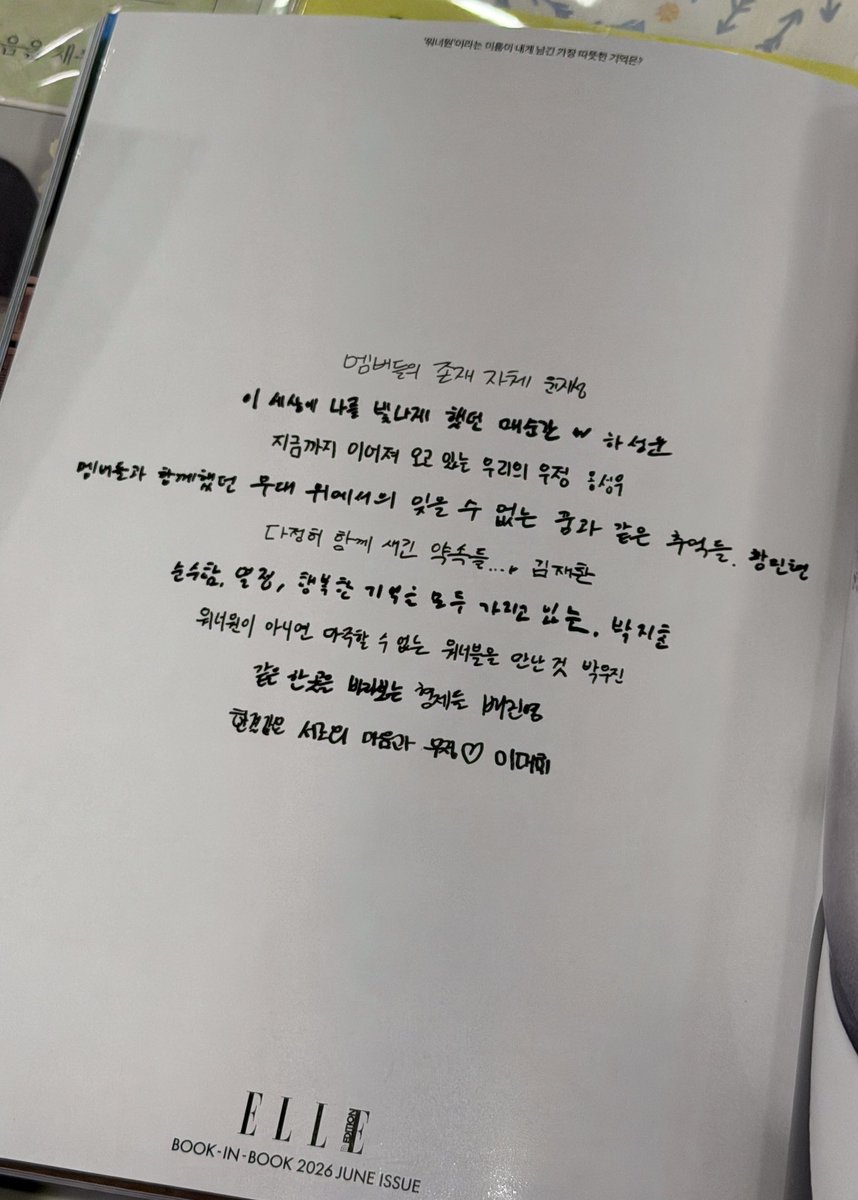 음을 새
'워너원'이라는 이름이 내게 남긴 가장 따뜻한 기억은?
멤버들의 존재 자체 윤지성
이 세상에 나를 빛나게 했던 매순간 w 하성운
지금까지 이어져 오고 있는 우리의 우정 옹성우
멤버들과 함께했던 무대 위에서의 잊을 수 없는 꿈과 같은 추억들. 황민현
다정히 함께 새긴 약속들..., 김재환
순수함, 열정, 행복한 기억을 모두 가리고 있는, 박지훈
워너원이 아니면 마주할 수 없는 워너블을 만난 것 박우진
같은 한곳을 바라보는 형제들 배진영
한결같은 서로의 마음과 우정♡ 이대휘
ELLE
EDITION
BOOK-IN-BOOK 2026 JUNE ISSUE